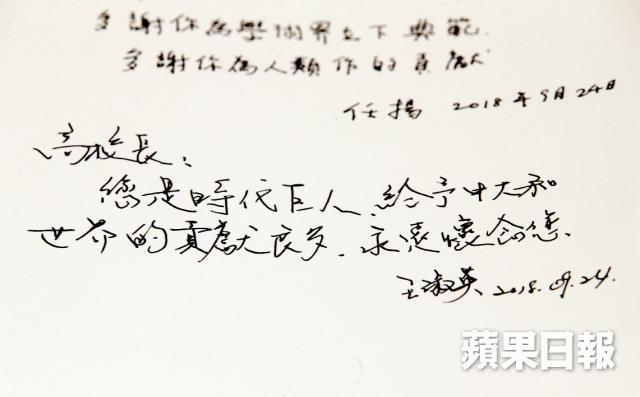 多謝你為學術界立下典範.
多謝你為人類作的貢獻
任揚 2018年9月24日
高校長:
您是時代巨人,給予中大和
世界的貢獻良多,永遠懷念您.
王淑英 2018.09.24.
蘋果日報